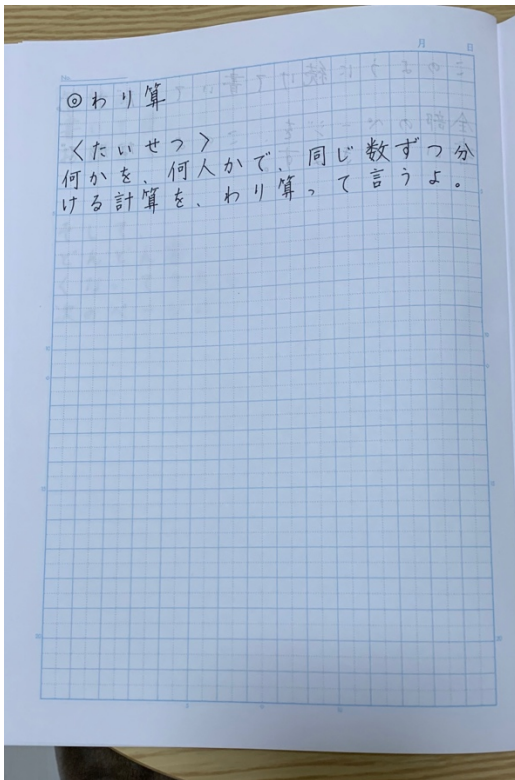 月 日
No.
◎わり算
〈たいせつ〉
何かを、何人かで、同じ数ずつ分
ける計算を、わり算って言うよ。